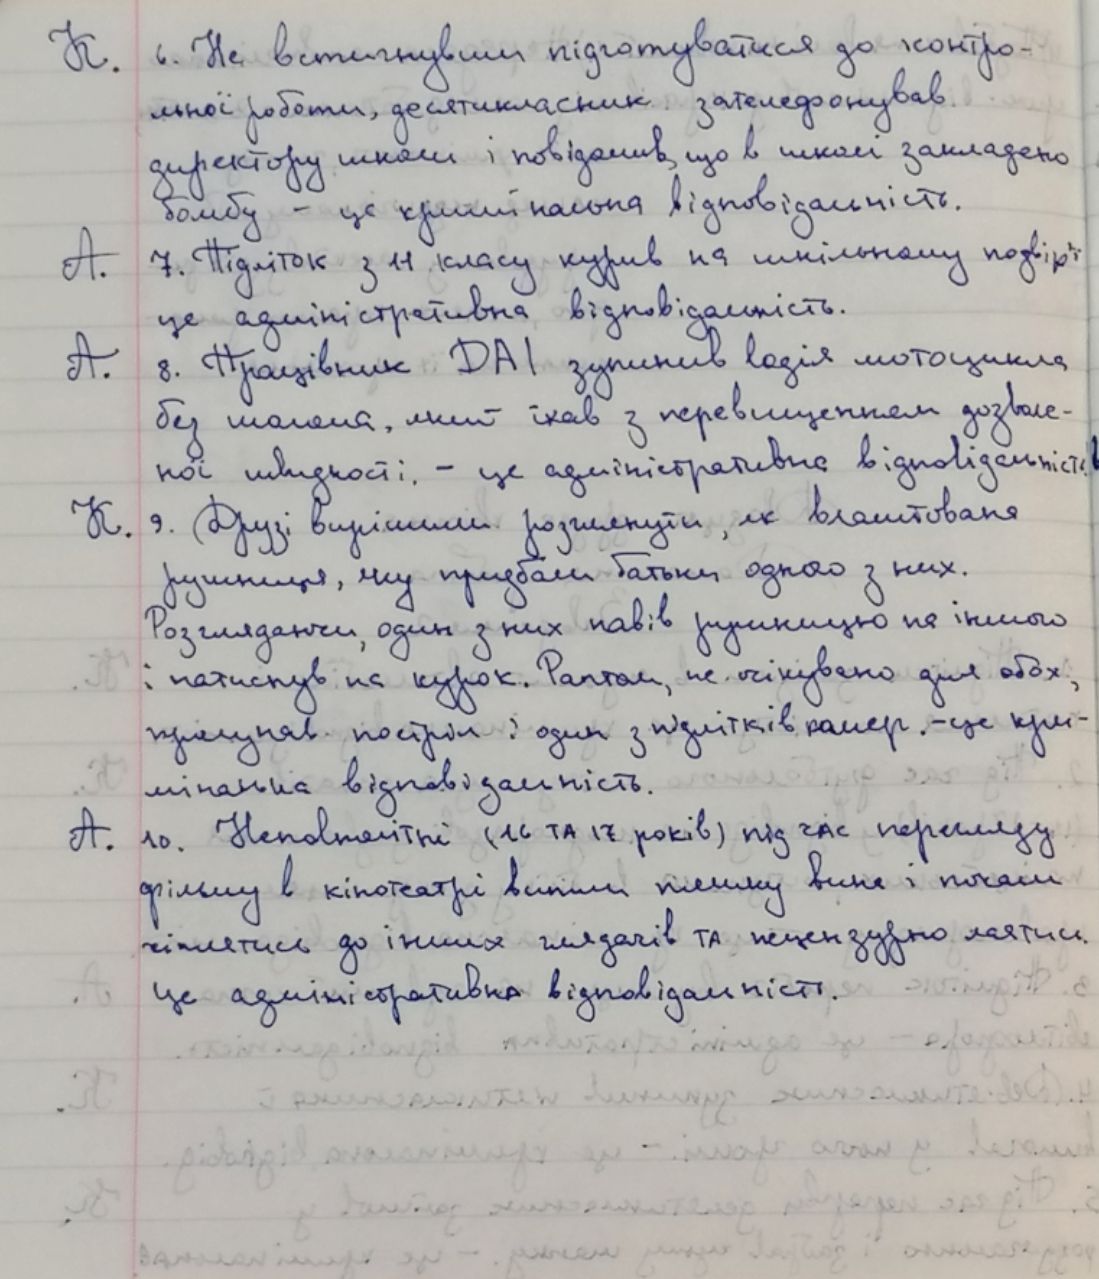 К. 6. Не встигнувши підготуватися до контро-
льної роботи, десятикласник зателефонував
директору школи і повідомив, що в школі закладено
бомбу - це кримінальна відповідальність.
А. 7. Підліток з 11 класу курив на шкільному подвір'ї
це адміністративна відповідальність.
А. 8. Працівник DAI зупинив водія мотоцикла
без шолома, який їхав з перевищенням дозволе-
ної швидкості, - це адміністративна відповідальність.
К. 9. Друзі вирішили розглянути, як влаштована
рушниця, яку придбали батьки одного з них.
Розглядаючи, один з них навів рушницю на іншого
і натиснув на курок. Раптом, не очікувано для обох,
пролунав постріл і один з підлітків помер. - це кри-
мінальна відповідальність.
А. 10. Неповнолітні (16 ТА 17 років) під час перегляду
фільму в кінотеатрі випили пляшку вина і почали
чіплятись до інших глядачів ТА нецензурно лаятись.
це адміністративна відповідальність.